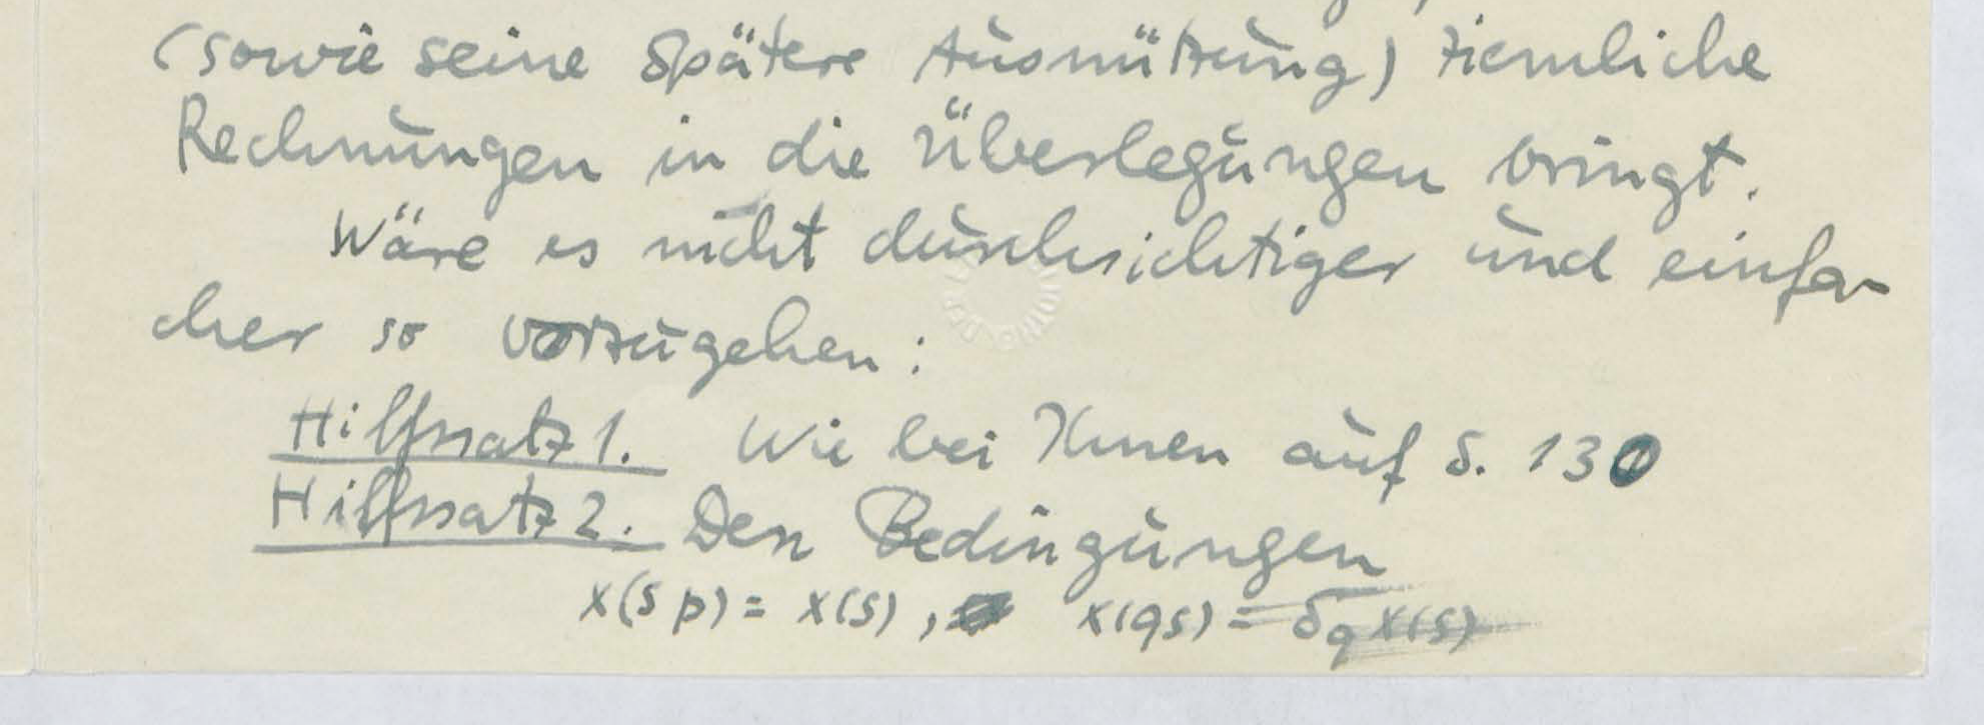 (sowie seine spätere Ausnützung) ziemliche
Rechnungen in die Überlegungen bringt.
Wäre es nicht durchsichtiger und einfa-
cher so vorzugehen:
Hilfssatz 1. Wie bei Ihnen auf S. 130
Hilfssatz 2. Den Bedingungen
x(sp) = x(s), x(qs) = δq x(s)